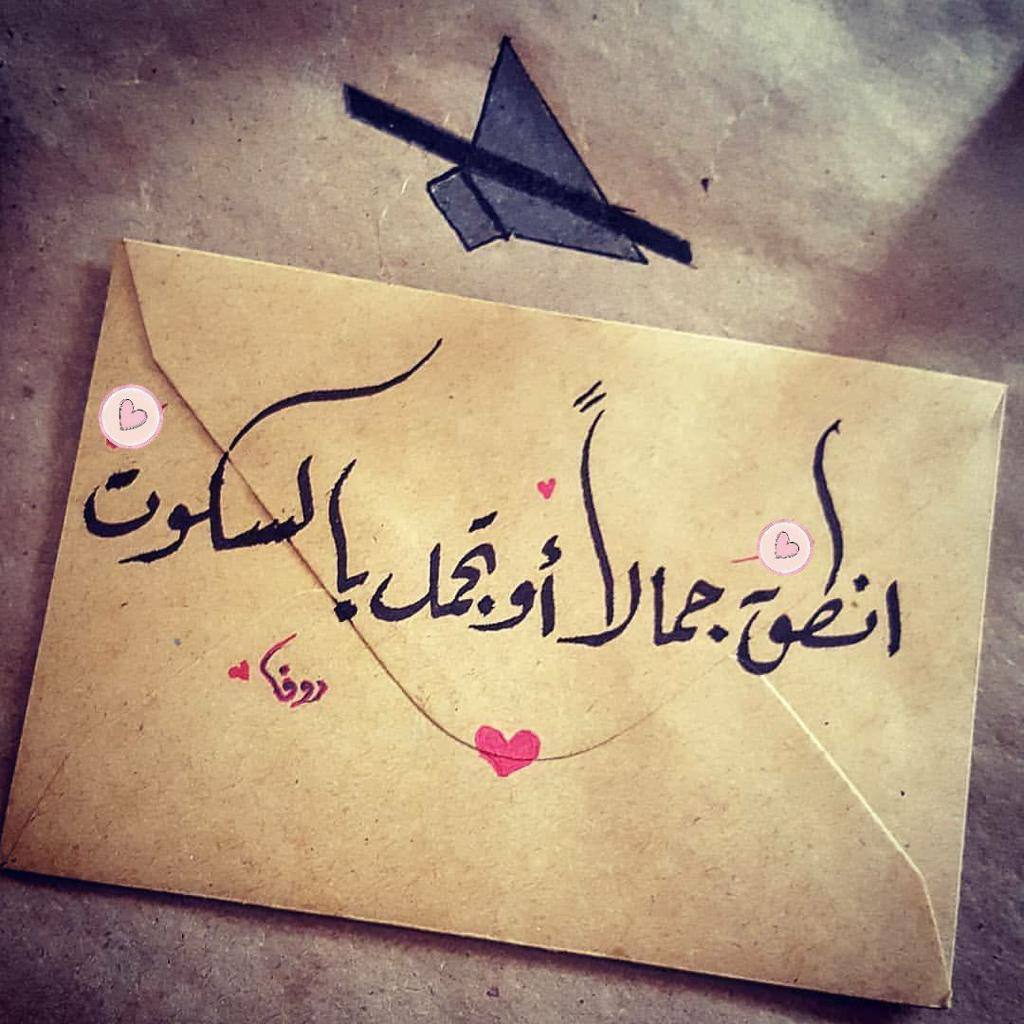 انطق جمالاً أو تجمل بالسكوت